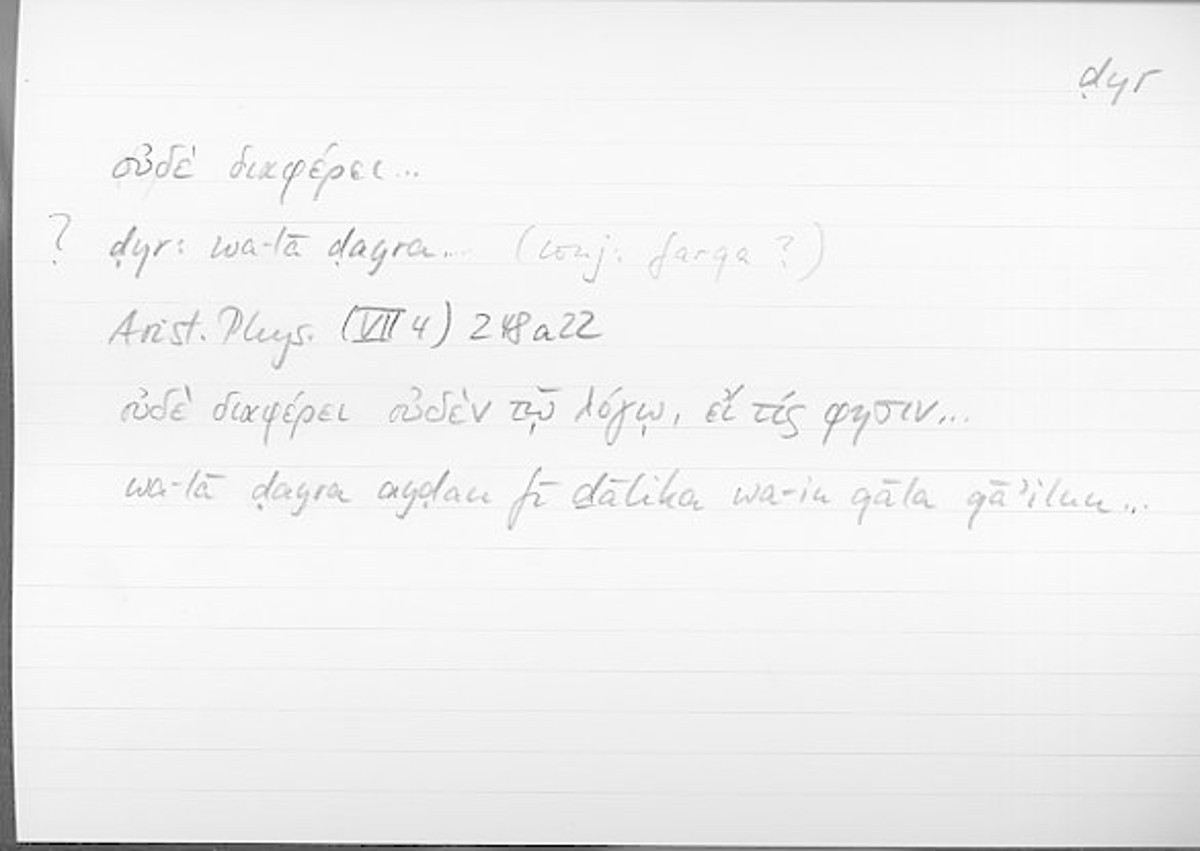 ḍyr
οὐδὲ διαφέρει...
? ḍyr: wa-lā ḍayra... (conj. farqa ?)
Arist. Phys. (VII 4) 248a22
οὐδὲ διαφέρει οὐδὲν τῷ λόγῳ, εἴ τίς φησιν...
wa-lā ḍayra ayḍan fī ḏālika wa-in qāla qāʾilun...